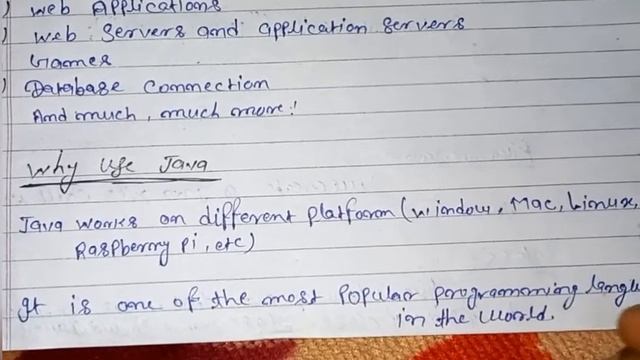 ) Web Applications
) Web Servers and application servers
Games
) Database Connection
And much, much more!
Why use Java
Java works on different platform (window, Mac, Linux,
Raspberry Pi, etc)
It is one of the most Popular programming langu
in the world.